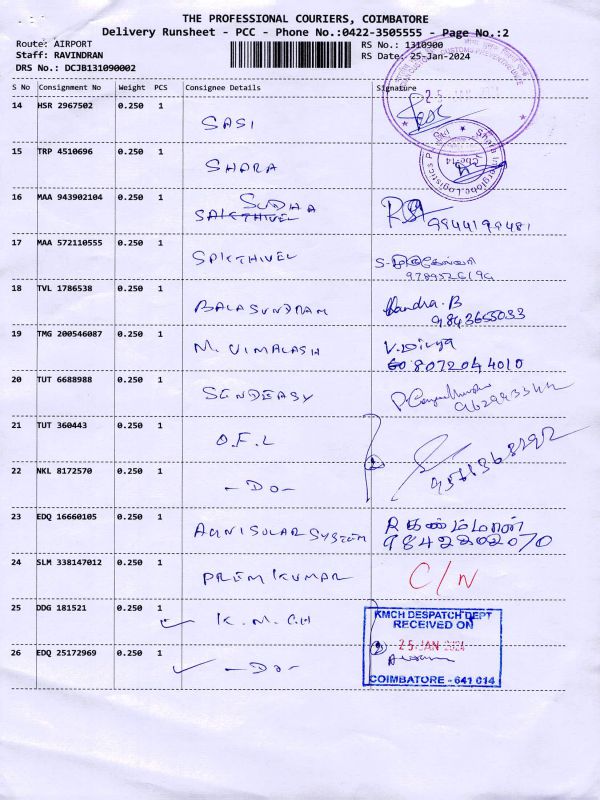 THE PROFESSIONAL COURIERS, COIMBATORE
Delivery Runsheet - PCC - Phone No.:0422-3505555 - Page No.:2
Route: AIRPORT
Staff: RAVINDRAN
DRS No.: DCJB131090002
RS No.: 1310900
RS Date: 25-Jan-2024
S No Consignment No Weight PCS Consignee Details Signature
14 HSR 2967502 0.250 1 SASI
15 TRP 4510696 0.250 1 SHARA
16 MAA 943902104 0.250 1 SUDHA
SAKTHIVEL
9844199481
17 MAA 572110555 0.250 1 SAKTHIVEL
18 TVL 1786538 0.250 1 BALASUNDRAM Chandra.B
9843655033
19 TMG 200546087 0.250 1 M. VIMALASH V.Divya
8072044010
20 TUT 6688988 0.250 1 SENDEASY
21 TUT 360443 0.250 1 O.F.L
22 NKL 8172570 0.250 1 -DO-
23 EDQ 16660105 0.250 1 AGNISOLAR SYSTEM
9842202070
24 SLM 338147012 0.250 1 PREM KUMAR C/N
25 DDG 181521 0.250 1 K.M.C.H
26 EDQ 25172969 0.250 1 -DO-
KMCH DESPATCH DEPT
RECEIVED ON
25 JAN 2024
COIMBATORE - 641 014